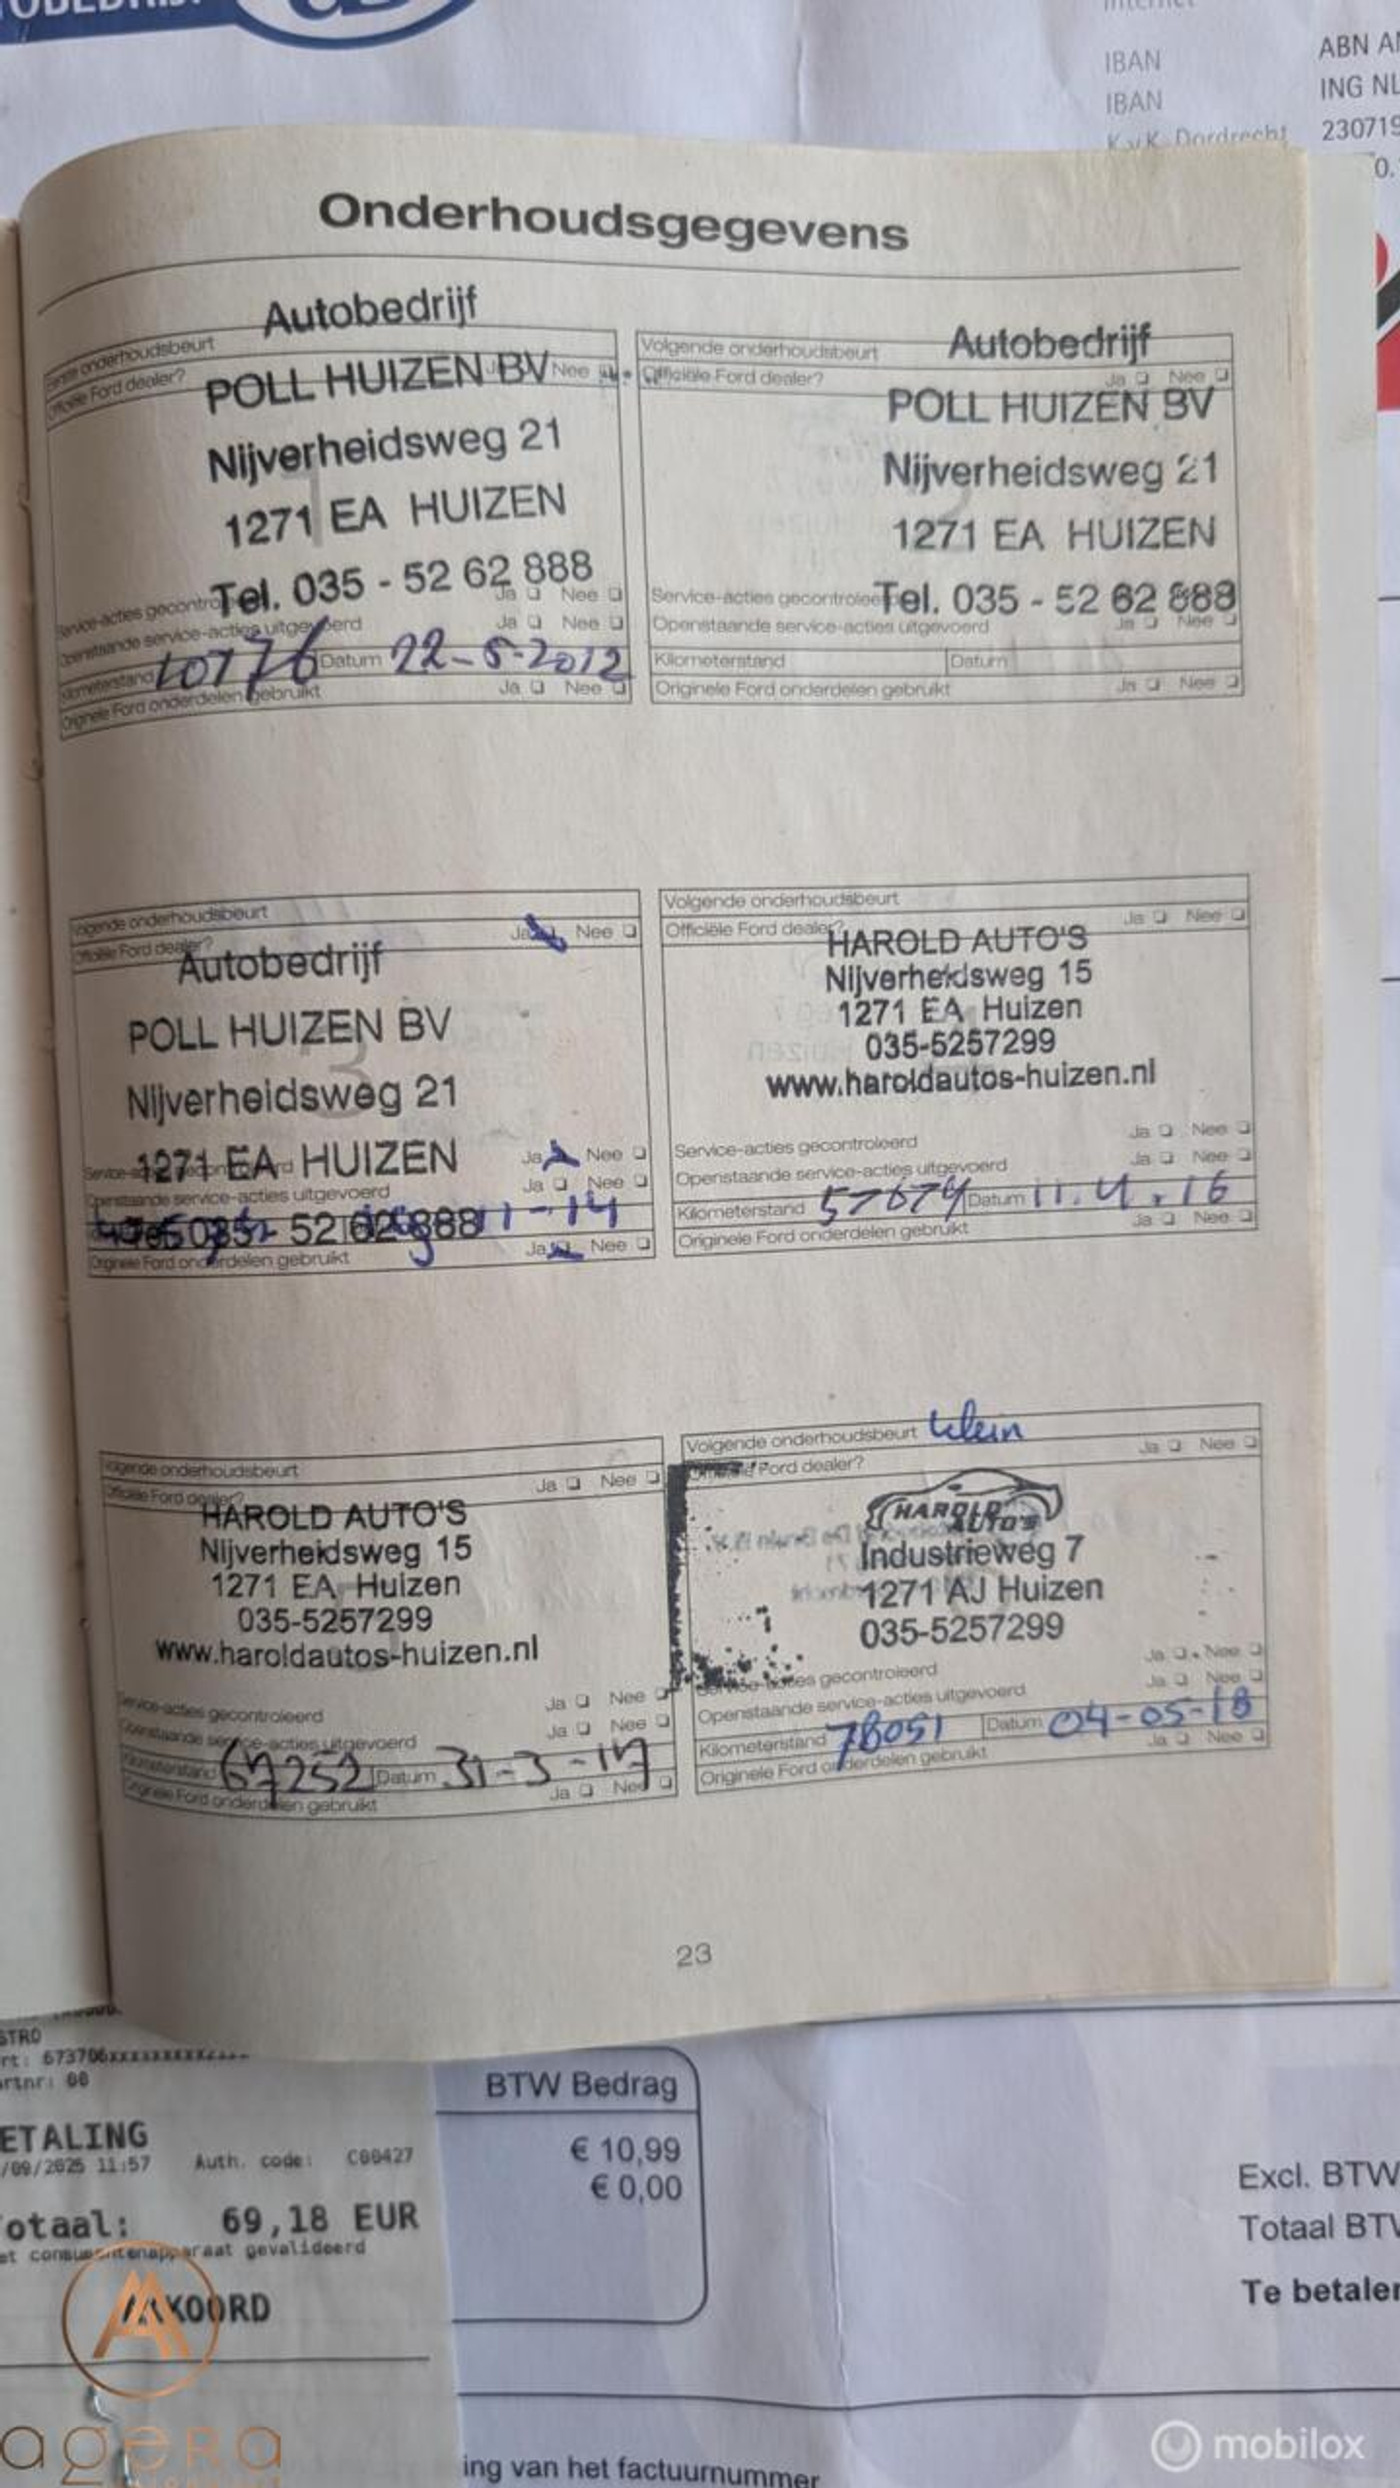 IBAN
ABN
IBAN
ING
K.v.K. Dordrecht
230719
Onderhoudsgegevens
Autobedrijf
onderhoudsbeurt
Officiële Ford dealer?
Nee
POLL HUIZEN BV
Nijverheidsweg 21
1271 EA HUIZEN
Tel. 035 - 52 62 888
Ja Nee
Openstaande service-acties uitgevoerd
Ja Nee
Kilometerstand 10776 Datum 22-5-2012
Originele Ford onderdelen gebruikt
Ja Nee
Volgende onderhoudsbeurt
Autobedrijf
Officiële Ford dealer?
Ja Nee
POLL HUIZEN BV
Nijverheidsweg 21
1271 EA HUIZEN
Service-acties
Tel. 035 - 52 62 888
Openstaande service-acties uitgevoerd
Ja Nee
Kilometerstand Datum
Originele Ford onderdelen gebruikt
Ja Nee
Volgende onderhoudsbeurt
Officiële Ford dealer?
Ja Nee
Autobedrijf
POLL HUIZEN BV
Nijverheidsweg 21
1271 EA HUIZEN
Ja Nee
Openstaande service-acties uitgevoerd
Ja Nee
035 52 62 888
11-14
Originele Ford onderdelen gebruikt
Ja Nee
Volgende onderhoudsbeurt
Officiële Ford dealer?
Ja Nee
HAROLD AUTO'S
Nijverheidsweg 15
1271 EA Huizen
035-5257299
www.haroldautos-huizen.nl
Service-acties gecontroleerd
Ja Nee
Openstaande service-acties uitgevoerd
Ja Nee
Kilometerstand 57674 Datum 11.4.16
Originele Ford onderdelen gebruikt
Ja Nee
Volgende onderhoudsbeurt
Officiële Ford dealer?
Ja Nee
HAROLD AUTO'S
Nijverheidsweg 15
1271 EA Huizen
035-5257299
www.haroldautos-huizen.nl
Service-acties gecontroleerd
Ja Nee
Openstaande service-acties uitgevoerd
Ja Nee
Kilometerstand 67252 Datum 31-3-17
Originele Ford onderdelen gebruikt
Ja Nee
Volgende onderhoudsbeurt klein
Ford dealer?
Ja Nee
HAROLD
AUTO'S
Industrieweg 7
1271 AJ Huizen
035-5257299
gecontroleerd
Ja Nee
Openstaande service-acties uitgevoerd
Ja Nee
Kilometerstand 78051 Datum 04-05-18
Originele Ford onderdelen gebruikt
Ja Nee
23
STRO
rt: 673706xxxxxxxxxx
artnr: 00
ETALING
/09/2025 11:57 Auth. code: C00427
otaal: 69,18 EUR
gevalideerd
AKKOORD
BTW Bedrag
€ 10,99
€ 0,00
Excl. BTW
Totaal
Te betalen
ing van het factuurnummer
agera
mobilox